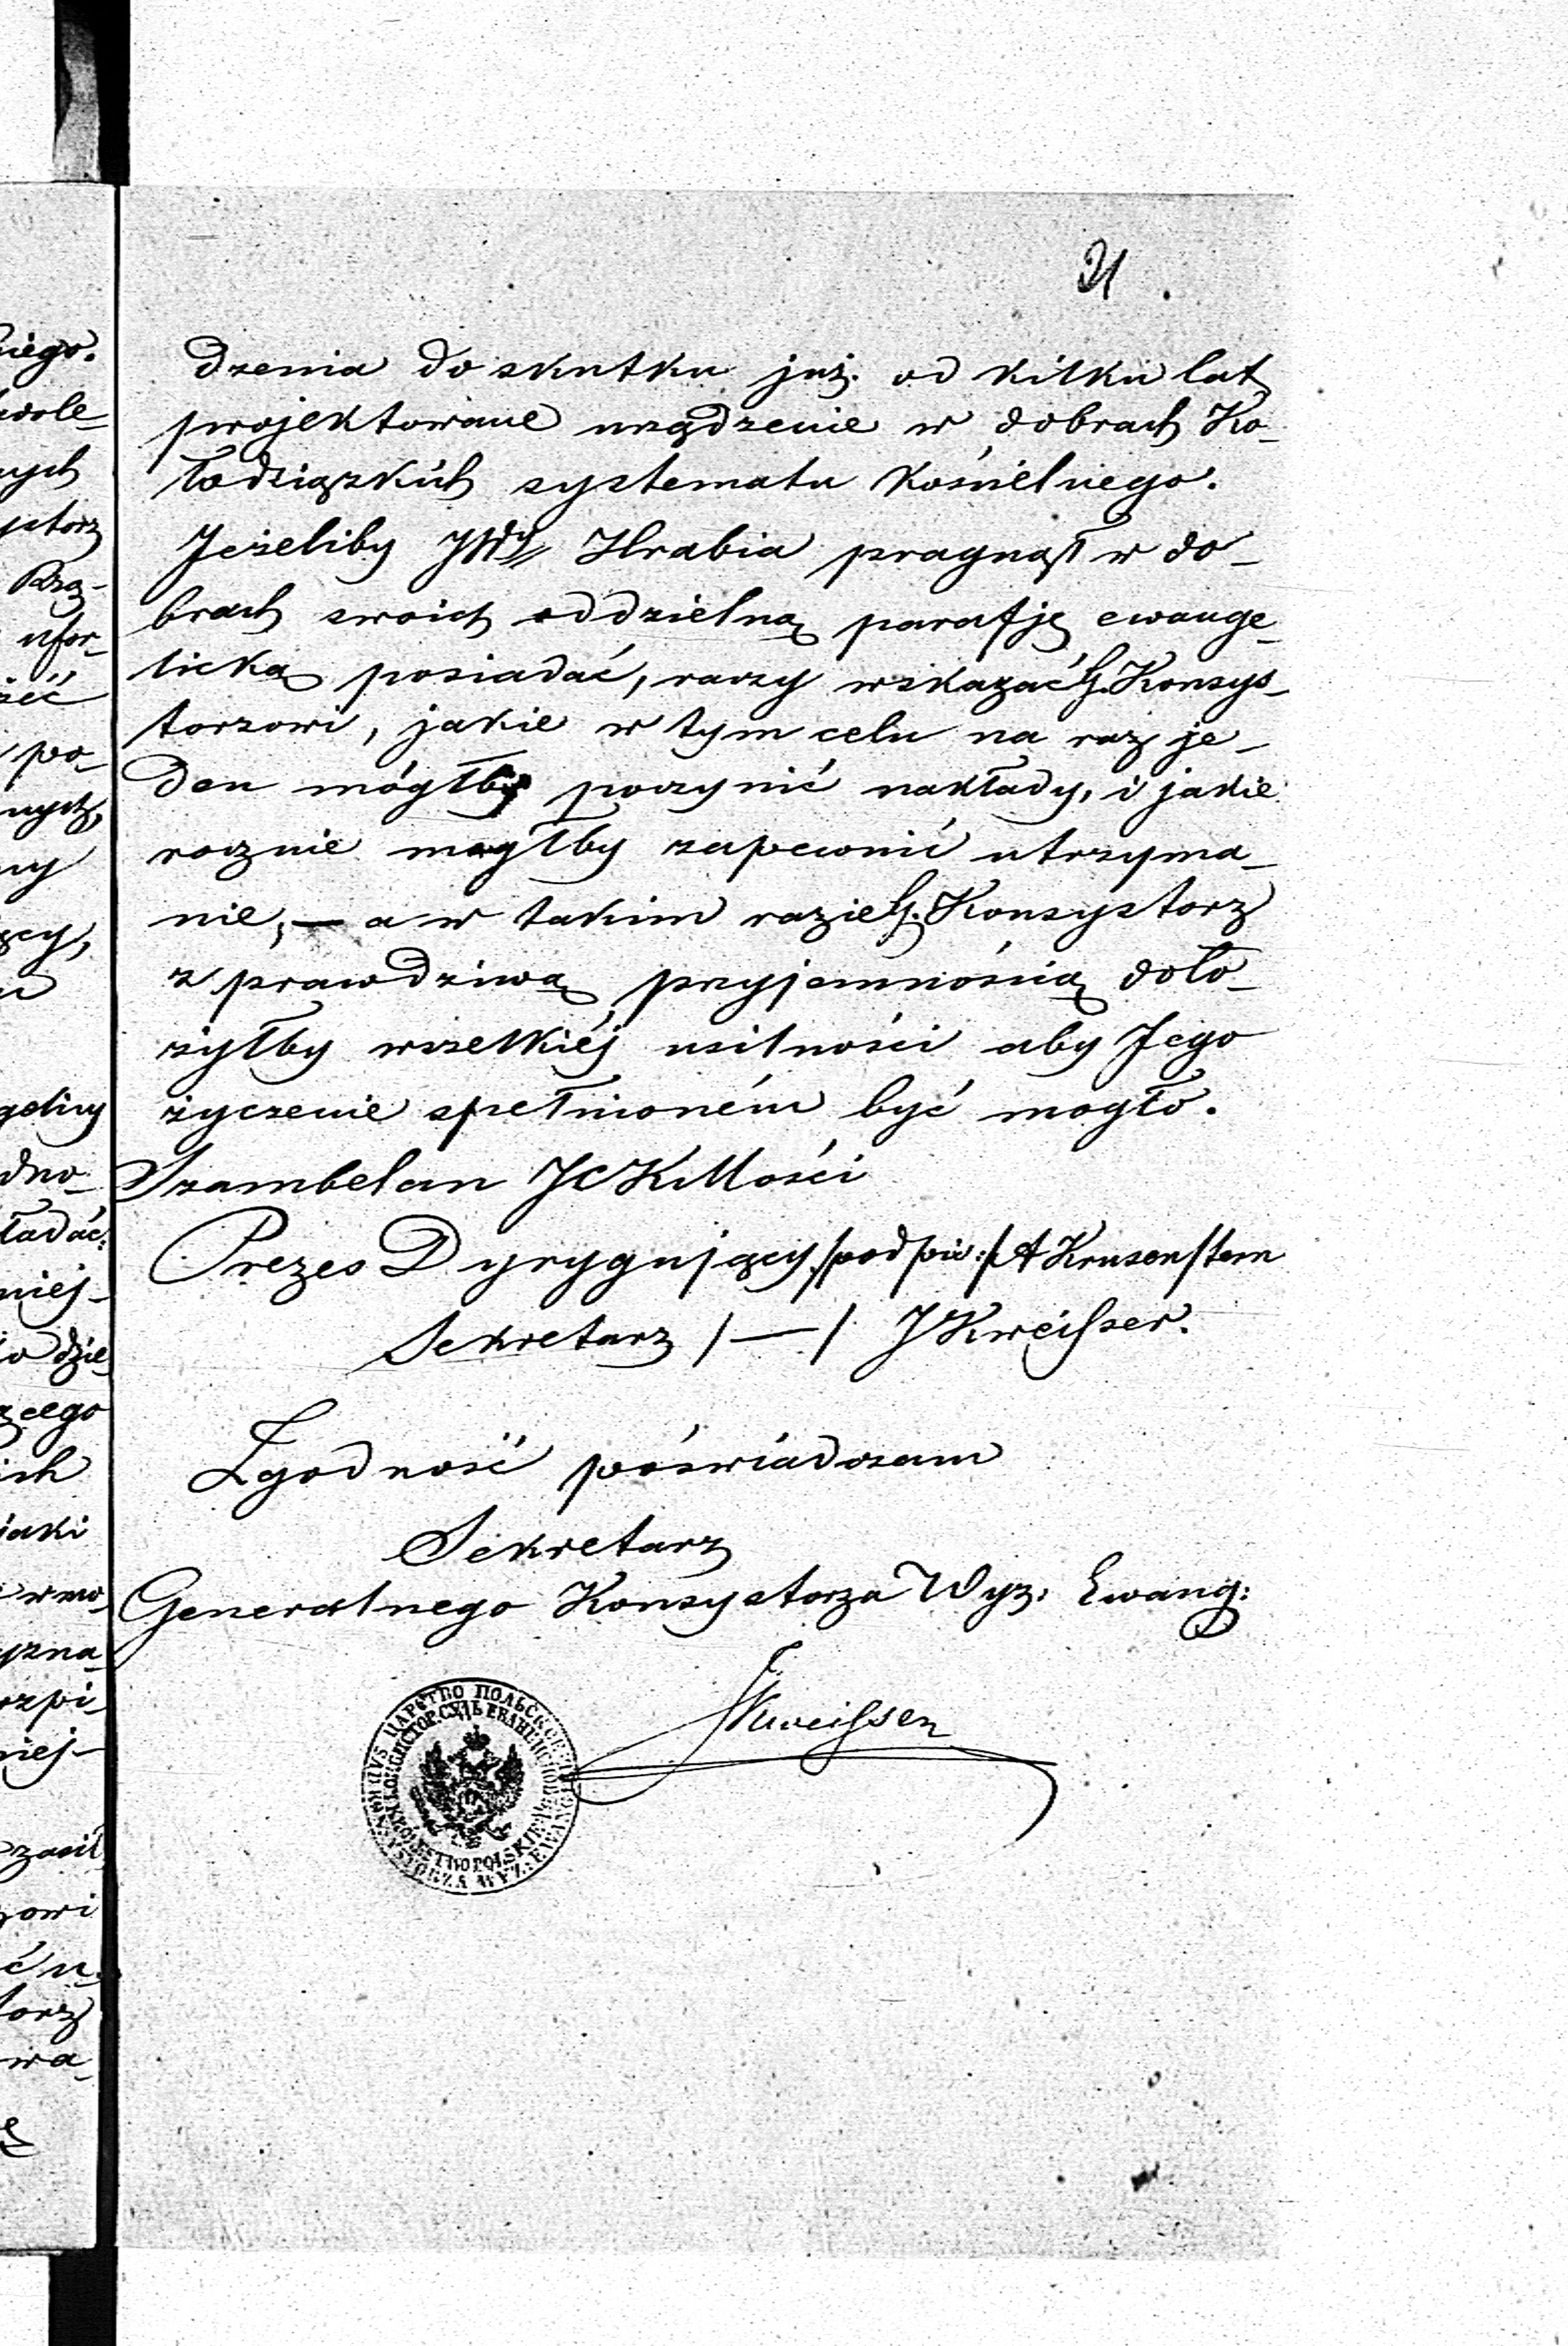 21
dzenia do skutku już od kilku lat
projektowane urządzenie w dobrach Ko-
łodziązkich systematu kościelnego.
Jeżeliby JWy Hrabia pragnął w do-
brach swoich oddzielną parafję ewange-
licką posiadać, raczy wskazać G. Konsys-
torzowi, jakie w tym celu na raz je-
den mógłby poczynić nakłady, i jakie
rocznie mogłby zapewnić utrzyma-
nie, — a w takim razie G. Konsystorz
z prawdziwą przyjemnością doło-
żyłby wszelkiéj usilności aby Jego
życzenie spełnioném być mogło.
Szambelan JCKMości
Prezes Dyrygujący /podpis:/ A Krusenstern
Sekretarz /—/ J Kweisser.
Zgodność poświadczam
Sekretarz
Generalnego Konsystorza Wyz: Ewang:
JKweisser
niego.
wole-
nych
ystorz
Rzą-
ufor-
po-
nych,
ny
dno-
niej-
zcego
ich
wmo-
yzna-
zpi-
niej-
owi
torz
wa-